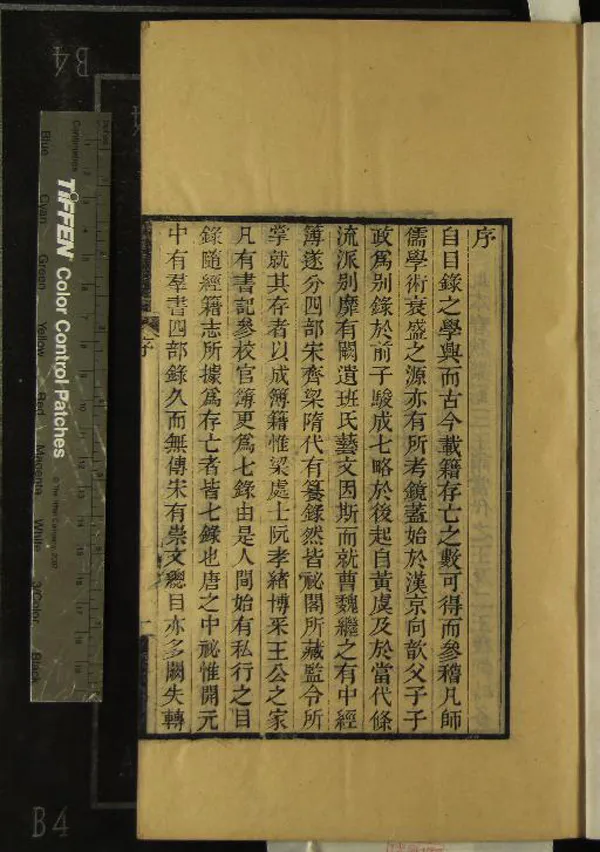 序
自目錄之學興而古今載籍存亡之數可得而參稽凡師
儒學術衰盛之源亦有所考鏡蓋始於漢京向歆父子子
政爲别錄於前子駿成七略於後起自黃虞及於當代條
流派别靡有闕遺班氏藝文因斯而就曹魏繼之有中經
簿遂分四部宋齊梁隋代有纂錄然皆祕閣所藏監令所
掌就其存者以成簿籍惟梁處士阮孝緒博采王公之家
凡有書記參校官簿更爲七錄由是人間始有私行之目
錄隨經籍志所據爲存亡者皆七錄也唐之中祕惟開元
中有羣書四部錄久而無傳宋有崇文總目亦多闕失轉
序
一
B4
B4
TIFFEN Color Control Patches
© The Tiffen Company, 2007
Centimetres
Blue
Cyan
Green
Yellow
Red
Magenta
White
3/Color
Black